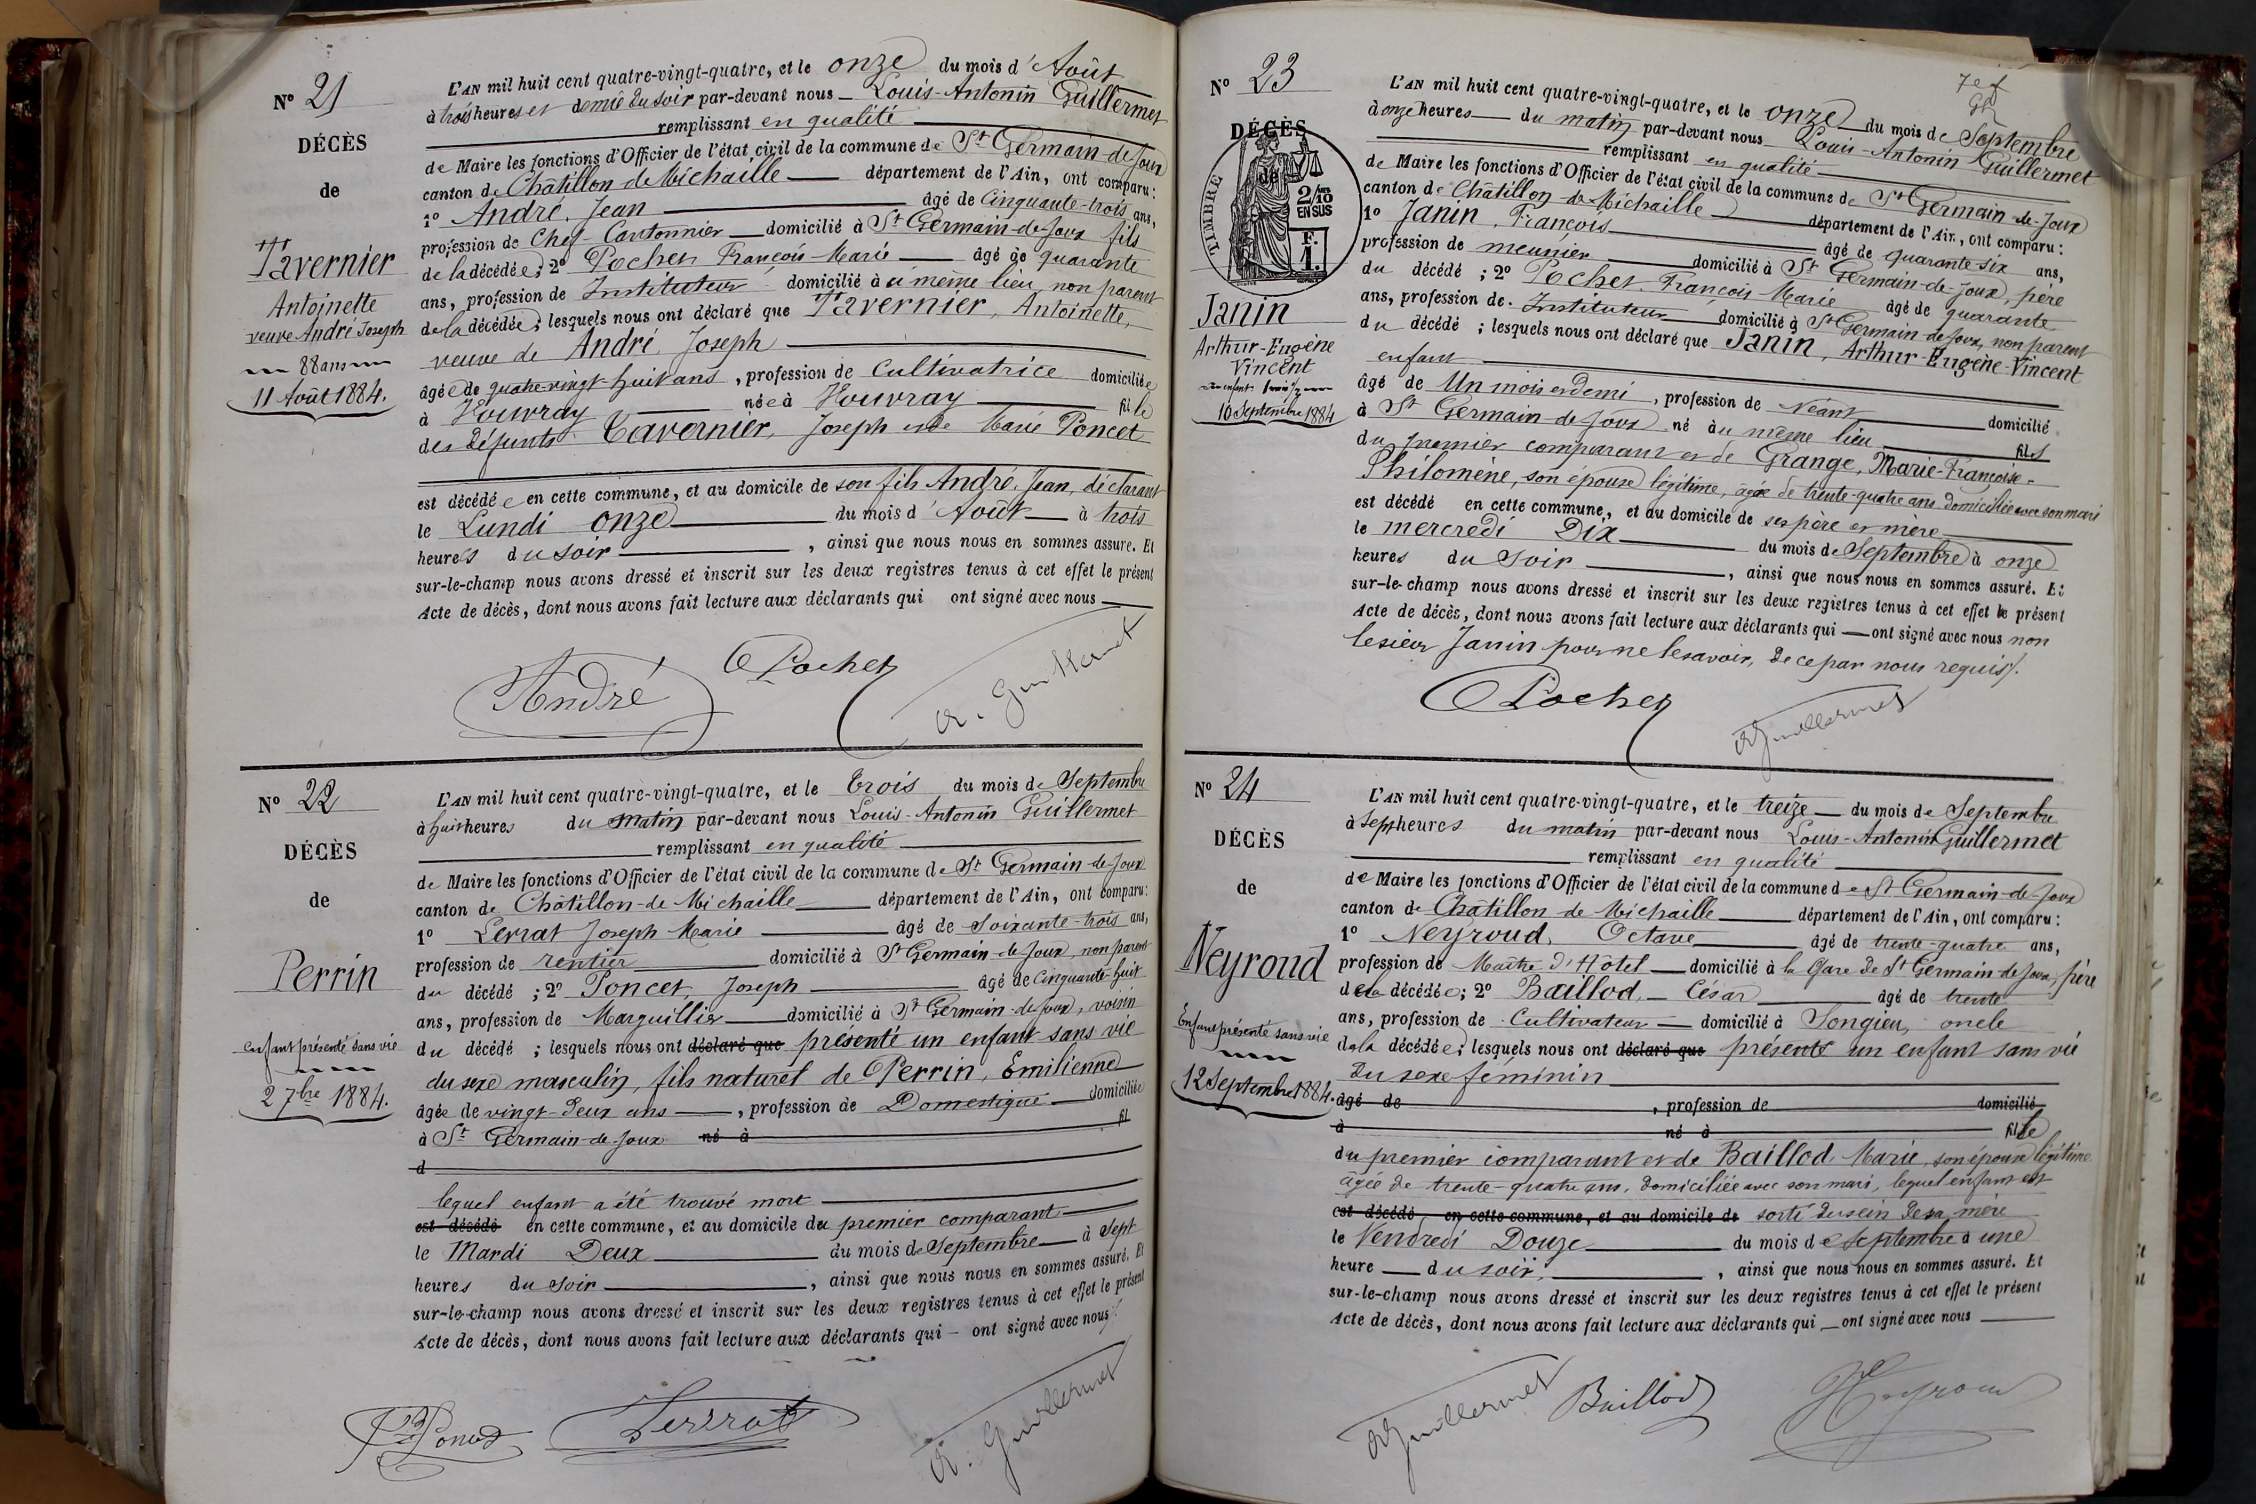 Nº 21
DÉCÈS
de
Tavernier
Antoinette
veuve André Joseph
88 ans
11 Août 1884.
L'AN mil huit cent quatre-vingt-quatre, et le onze du mois d'Août
à trois heures et demie du soir par-devant nous Louis-Antonin Guillermet
remplissant en qualité
de Maire les fonctions d'Officier de l'état civil de la commune de St Germain-de-Joux
canton de Châtillon de Michaille département de l'Ain, ont comparu:
1º André, Jean âgé de Cinquante-trois ans,
profession de Chef-Cantonnier domicilié à St Germain-de-Joux fils
de la décédée; 2º Pochet François-Marie âgé de quarante
ans, profession de Instituteur domicilié à u même lieu non parent
de la décédée; lesquels nous ont déclaré que Tavernier, Antoinette,
veuve de André, Joseph
âgée de quatre-vingt-huit ans, profession de Cultivatrice domiciliée
à Vouvray née à Vouvray fille
des défunts Tavernier, Joseph et de Marie Poncet
est décédée en cette commune, et au domicile de son fils André, Jean, déclarant
le Lundi onze du mois d'Août à trois
heures du soir, ainsi que nous nous en sommes assuré. Et
sur-le-champ nous avons dressé et inscrit sur les deux registres tenus à cet effet le présent
Acte de décès, dont nous avons fait lecture aux déclarants qui ont signé avec nous
André Pochet A. Guillermet
Nº 22
DÉCÈS
de
Perrin
enfant présenté sans vie
2 7bre 1884.
L'AN mil huit cent quatre-vingt-quatre, et le trois du mois de Septembre
à huit heures du matin par-devant nous Louis-Antonin Guillermet
remplissant en qualité
de Maire les fonctions d'Officier de l'état civil de la commune de St Germain-de-Joux
canton de Châtillon-de-Michaille département de l'Ain, ont comparu:
1º Perrat Joseph Marie âgé de Soixante-trois ans,
profession de rentier domicilié à St Germain-de-Joux, non parent
du décédé; 2º Poncet, Joseph âgé de Cinquante-huit
ans, profession de Marguillier domicilié à St Germain-de-Joux, voisin
du décédé; lesquels nous ont déclaré que présenté un enfant sans vie
du sexe masculin, fils naturel de Perrin, Emilienne
âgée de vingt-deux ans, profession de Domestique domiciliée
à St Germain-de-Joux né à fil
d
lequel enfant a été trouvé mort
est décédé en cette commune, et au domicile du premier comparant
le Mardi Deux du mois de Septembre à Sept
heures du soir, ainsi que nous nous en sommes assuré. Et
sur-le-champ nous avons dressé et inscrit sur les deux registres tenus à cet effet le présent
Acte de décès, dont nous avons fait lecture aux déclarants qui ont signé avec nous
Perrat A. Guillermet
Nº 23
DÉCÈS
de
TIMBRE
2/10
EN SUS
F.
1.
Janin
Arthur-Eugène
Vincent
10 Septembre 1884
L'AN mil huit cent quatre-vingt-quatre, et le onze du mois de Septembre
à onze heures du matin par-devant nous Louis-Antonin Guillermet
remplissant en qualité
de Maire les fonctions d'Officier de l'état civil de la commune de St Germain-de-Joux
canton de Châtillon de Michaille département de l'Ain, ont comparu:
1º Janin, François âgé de quarante six ans,
profession de meunier domicilié à St Germain-de-Joux, père
du décédé; 2º Pochet François Marie âgé de quarante
ans, profession de Instituteur domicilié à St Germain de Joux, non parent
du décédé; lesquels nous ont déclaré que Janin, Arthur-Eugène-Vincent
enfant
âgé de Un mois et demi, profession de Néant domicilié
à St Germain-de-Joux né à u même lieu fils
du premier comparant et de Grange, Marie-Françoise-
Philomène, son épouse légitime, âgée de trente-quatre ans domiciliée avec son mari
est décédé en cette commune, et au domicile de ses père et mère
le mercredi Dix du mois de Septembre à onze
heures du soir, ainsi que nous nous en sommes assuré. Et
sur-le-champ nous avons dressé et inscrit sur les deux registres tenus à cet effet le présent
Acte de décès, dont nous avons fait lecture aux déclarants qui ont signé avec nous non
le sieur Janin pour ne le savoir, de ce par nous requis.
Pochet AGuillermet
Nº 24
DÉCÈS
de
Neyroud
Enfant présenté sans vie
12 Septembre 1884.
L'AN mil huit cent quatre-vingt-quatre, et le treize du mois de Septembre
à Sept heures du matin par-devant nous Louis-Antonin Guillermet
remplissant en qualité
de Maire les fonctions d'Officier de l'état civil de la commune de St Germain-de-Joux
canton de Châtillon-de-Michaille département de l'Ain, ont comparu:
1º Neyroud, Octave âgé de trente-quatre ans,
profession de Maître d'Hôtel domicilié à la Gare de St Germain de Joux, père
de la décédée; 2º Baillod, César âgé de trente
ans, profession de Cultivateur domicilié à Songieu, oncle
de la décédée; lesquels nous ont déclaré que présenté un enfant sans vie
du sexe féminin
âgé de, profession de domicilié
à né à fille
du premier comparant et de Baillod, Marie, son épouse légitime
âgée de trente-quatre ans, domiciliée avec son mari, lequel enfant est
est décédé en cette commune, et au domicile de sorti du sein de sa mère
le Vendredi Douze du mois de Septembre à une
heure du soir, ainsi que nous nous en sommes assuré. Et
sur-le-champ nous avons dressé et inscrit sur les deux registres tenus à cet effet le présent
Acte de décès, dont nous avons fait lecture aux déclarants qui ont signé avec nous
AGuillermet Baillod Neyroud